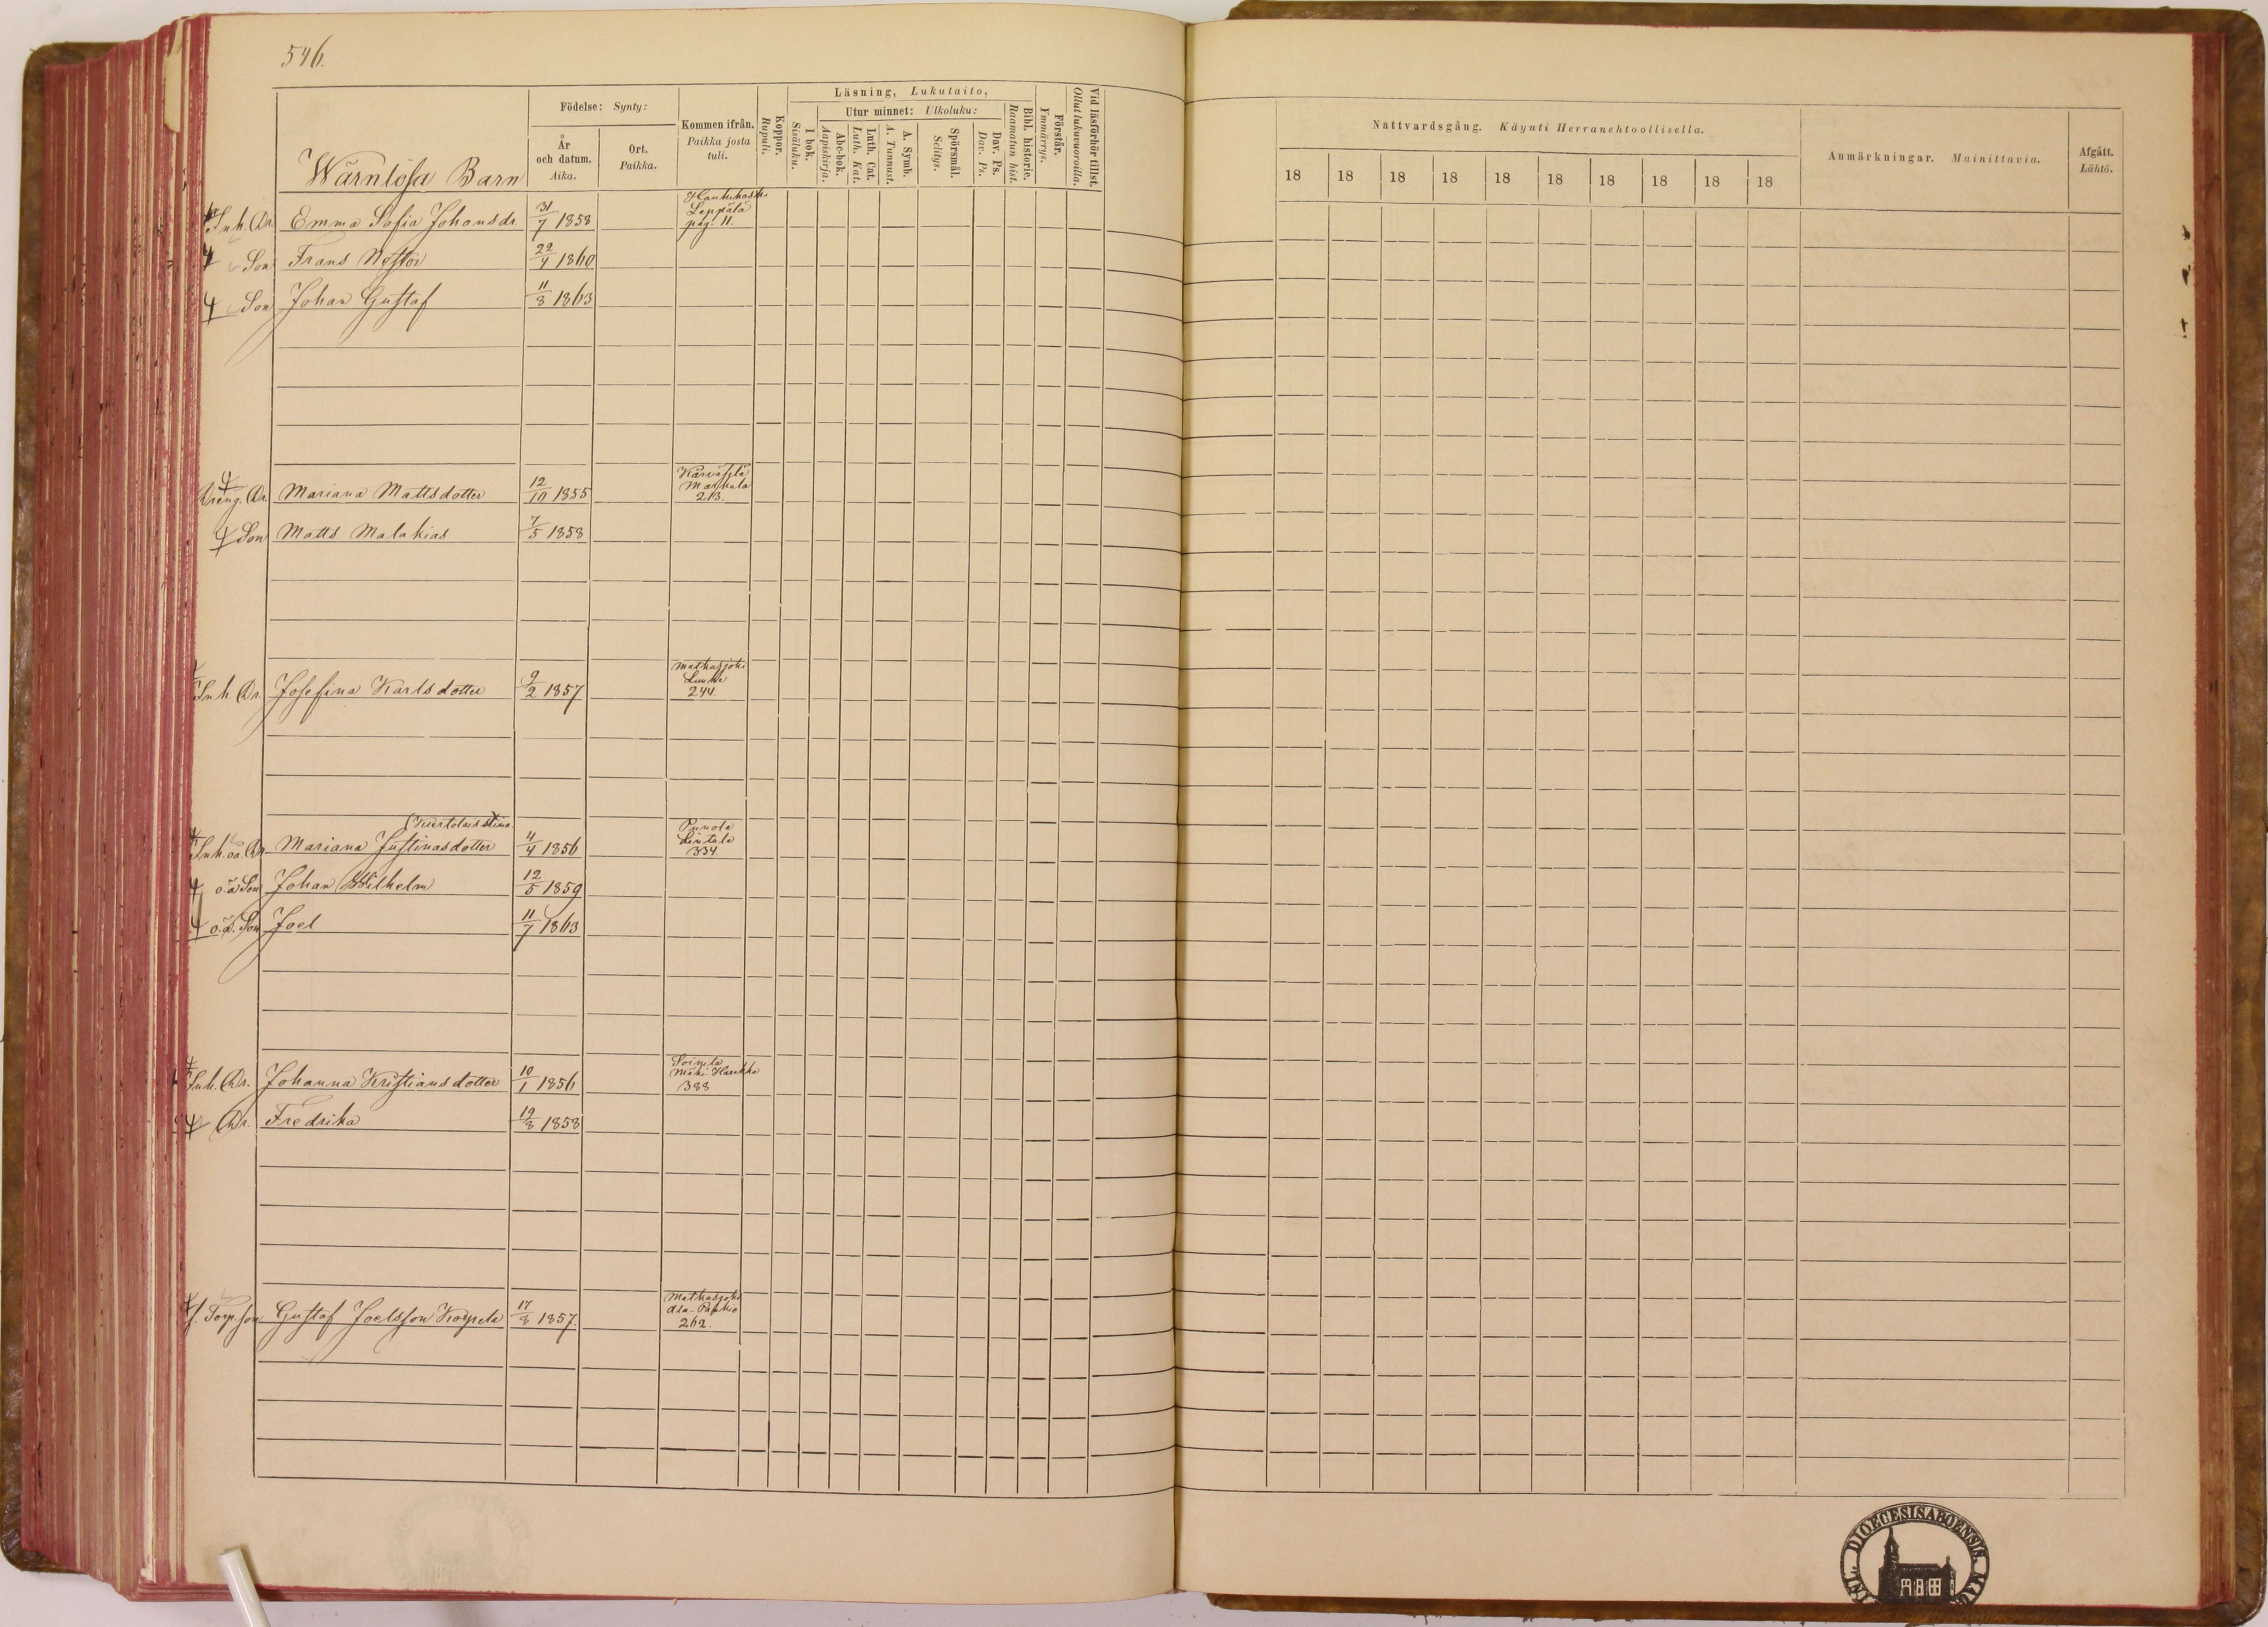 546.
Wärnlösa Barn
Födelse: Synty:
År och datum. Aika.
Ort. Paikka.
Kommen ifrån. Paikka josta tuli.
Koppor. Rupuli.
Läsning, Lukutaito,
I bok. Sisäluku.
Utur minnet: Ulkoluku:
Abc-bok. Aapiskirja.
Luth. Cat. Luth. Kat.
A. Symb. A. Tunnust.
Spörsmål. Selitys.
Dav. Ps. Dav. Ps.
Bibl. historie. Raamatun hist.
Förstår. Ymmärrys.
Vid läsförhör tillst. Ollut lukuvuoroilla.
Nattvardsgång. Käynti Herranehtoollisella.
18 18 18 18 18 18 18 18 18 18
Anmärkningar. Mainittavia.
Afgått. Lähtö.
Inh. Dr. Emma Sofia Johansdr 31/7 1858 Leppälä pag. 11.
Son Frans Nestor 22/4 1860
Son Johan Gustaf 11/8 1863
Dräng. Dr. Mariana Mattsdotter 12/10 1855 213.
Son Matts Malakias 7/5 1858
Inh. Dr. Josefina Karlsdotter 9/2 1857 Matkusjoki 244.
Inh. oä. Dr. Mariana Justinasdotter 4/4 1856 Punola Lintula 334.
o.ä Son Johan Wilhelm 12/5 1859
o.ä. Son Joel 11/7 1863
Inh. Dr. Johanna Kristiansdotter 10/1 1856 Mäki 388
Dr. Fredrika 19/8 1858
f. Torp. son Gustaf Joelsson Korpela 17/8 1857. Matkusjoki 262.
DIOECESIS ABOENSIS